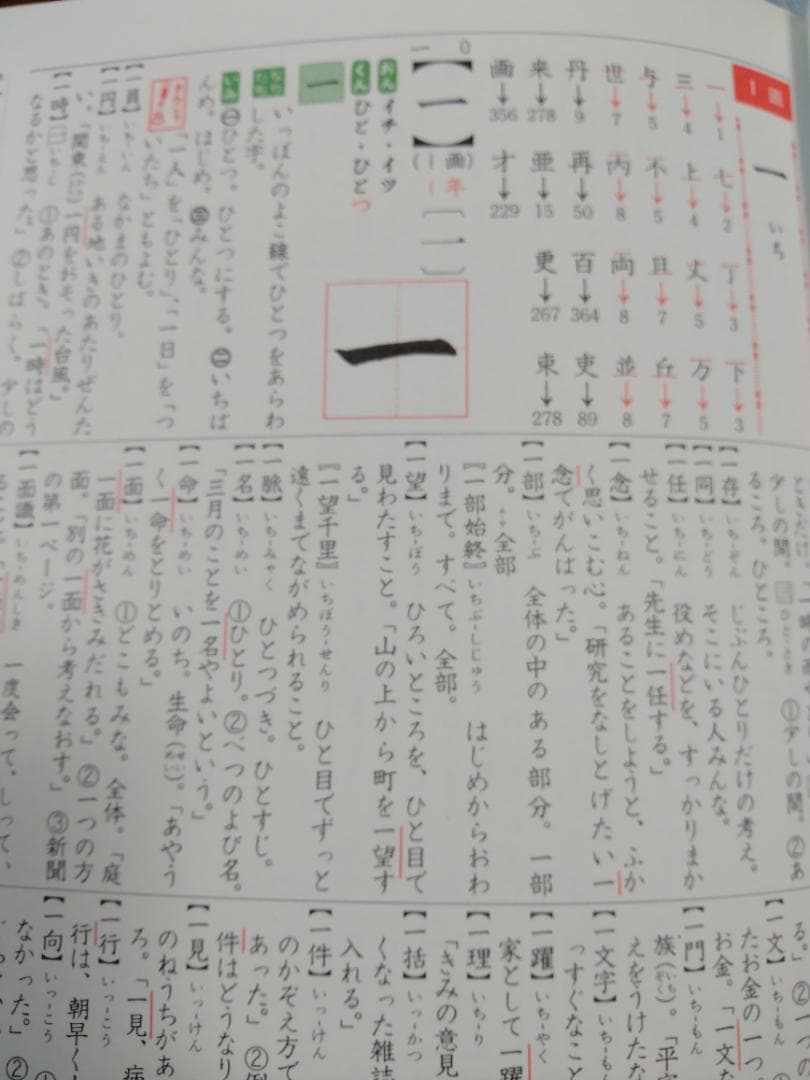 一画
一 いち
一→1 七→2 丁→3 下→3
三→4 上→4 丈→5 万→5
与→5 不→5 且→7 丘→7
世→7 丙→8 両→8 並→8
丹→9 再→50 百→364 吏→89
来→278 亜→15 更→267 東→278
画→356 才→229
一 0
【一】(一画) 年 〔一〕
おん イチ・イツ
くん ひと・ひとつ
一
一
いっぽんのよこ線でひとつをあらわ
した字。
いみ ㊀ひとつ。ひとつにする。㊁いちば
んめ。はじめ。㊂みんな。
「一人」を「ひとり」、「一日」を「つ
いたち」ともよむ。
【一員】いち-いん なかまのひとり。
【一円】いち-えん ある地いきのあたりぜんた
い。「関東一円をおそった台風。」
【一時】いち-じ ①あのとき。「一時はどう
なるかと思った。」②しばらく。少しの
少しの間。 ひととき ①少しの間。②あ
るころ。ひところ。
【一存】いち-ぞん じぶんひとりだけの考え。
【一同】いち-どう そこにいる人みんな。
【一任】いち-にん 役めなどを、すっかりまか
せること。「先生に一任する。」
【一念】いち-ねん あることをしようと、ふか
く思いこむ心。「研究をなしとげたい一
念でがんばった。」
【一部】いち-ぶ 全体の中のある部分。一部
分。↔全部
〖一部始終〗いちぶ-しじゅう はじめからおわ
りまで。すべて。全部。
【一望】いち-ぼう ひろいところを、ひと目で
見わたすこと。「山の上から町を一望す
る。」
〖一望千里〗いちぼう-せんり ひと目でずっと
遠くまでながめられること。
【一脈】いち-みゃく ひとつづき。ひとすじ。
【一名】いち-めい ①ひとり。②べつのよび名。
「三月のことを一名やよいという。」
【一命】いち-めい いのち。生命。「あやう
く一命をとりとめる。」
【一面】いち-めん ①どこもみな。全体。「庭
一面に花がさきみだれる。」②一つの方
面。「別の一面から考えなおす。」③新聞
の第一ページ。
【一面識】いち-めんしき 一度会って、しって、
る。」②一つの
【一文】いち-もん ①
たお金の一つ
お金。「一文な
【一門】いち-もん
族。「平
えをうけたな
【一文字】いち-も
っすぐなこと
【一躍】いち-やく
家として一躍
【一理】いち-り
「きみの意見
【一括】いっ-かつ
くなった雑誌
入れる。」
【一件】いっ-けん
のかぞえ方で
あった。」②例
件はどうなり
【一見】いっ-けん
のねうちがあ
ろ。「一見、病
【一行】いっ-こう
行は、朝早く
【一向】いっ-こう
なかった。」②